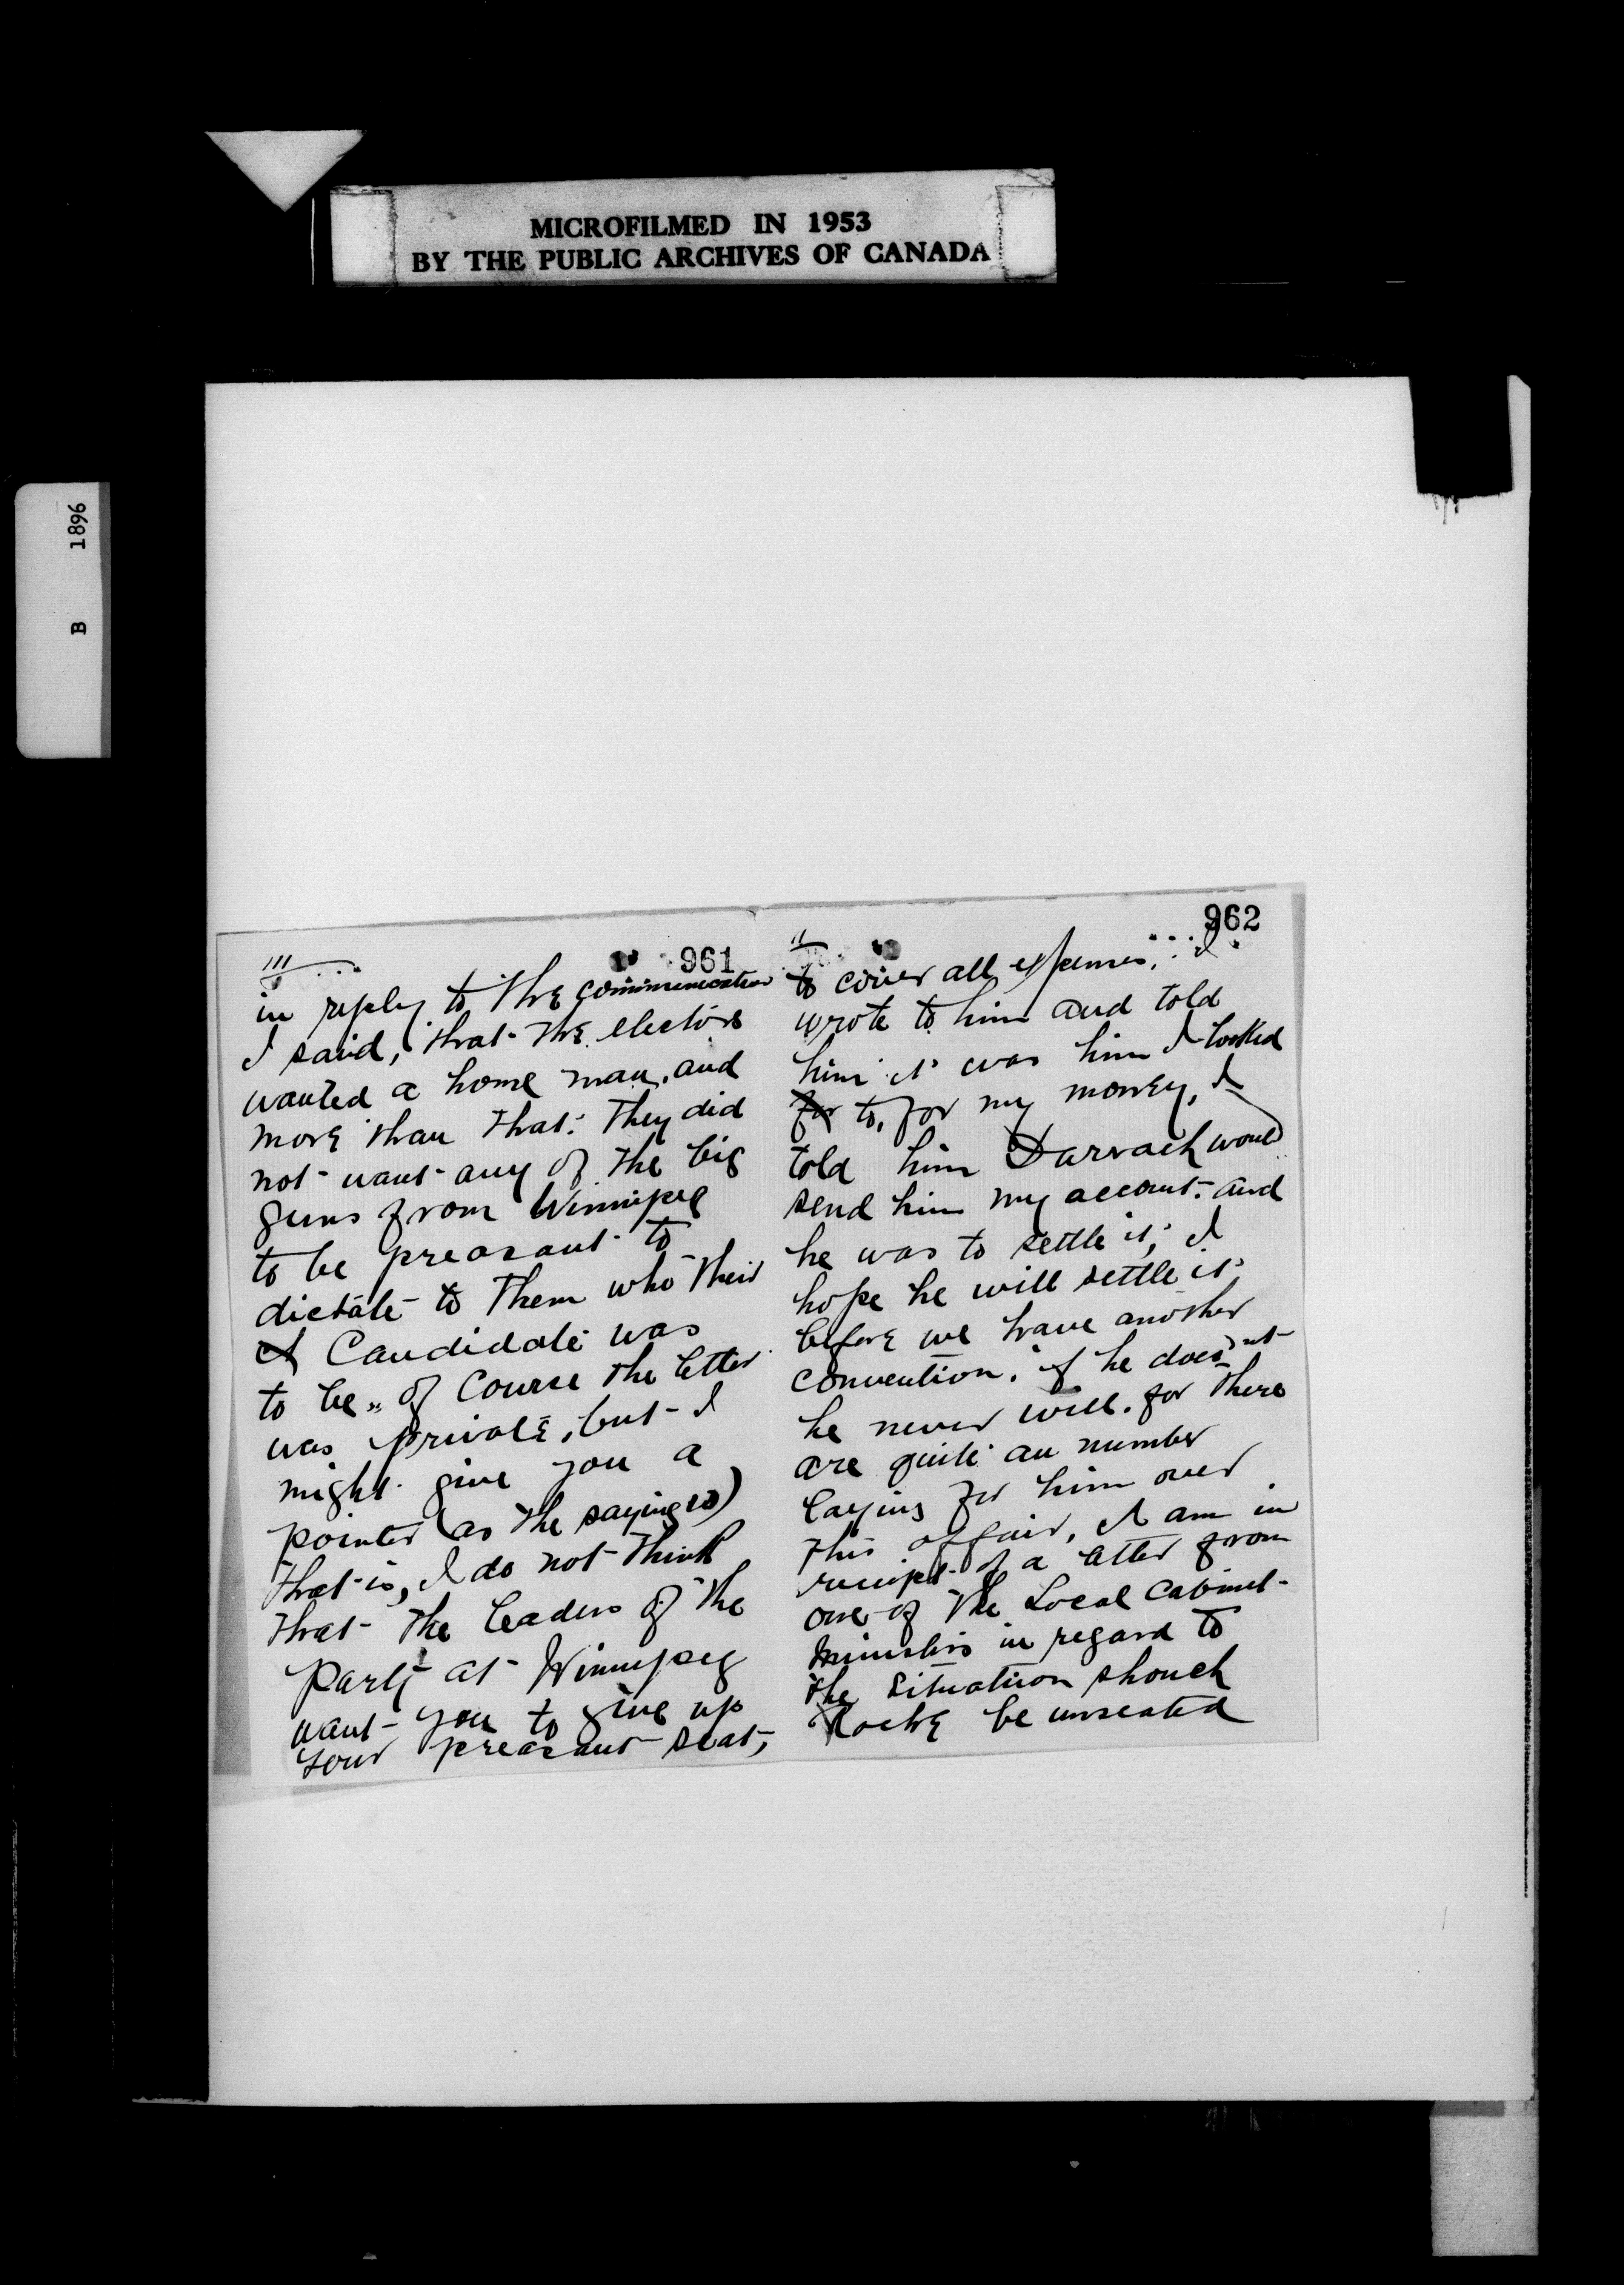 MICROFILMED IN 1953
BY THE PUBLIC ARCHIVES OF CANADA
B 1896
961
III
in reply to the communication
I said, that the electors
wanted a home man, and
more than that: they did
not want any of the big
guns from Winnipeg
to be preasant to
dictate to them who their
Candidate was
to be „ of Course the letter
was private, but I
might give you a
pointer (as the saying is)
that is, I do not think
that the leaders of the
party at Winnipeg
want you to give up
your preasant seat,
962
II
to cover all expenses, I
wrote to him and told
him it was him I looked
for to, for my money, I
told him Darrach would
send him my account and
he was to settle it, I
hope he will settle it
before we have another
convention. if he does'nt
he never will. for there
are quite an number
laying for him over
this affair, I am in
reciept of a letter from
one of the Local Cabinet
Ministers in regard to
the Situation should
Roche be unseated